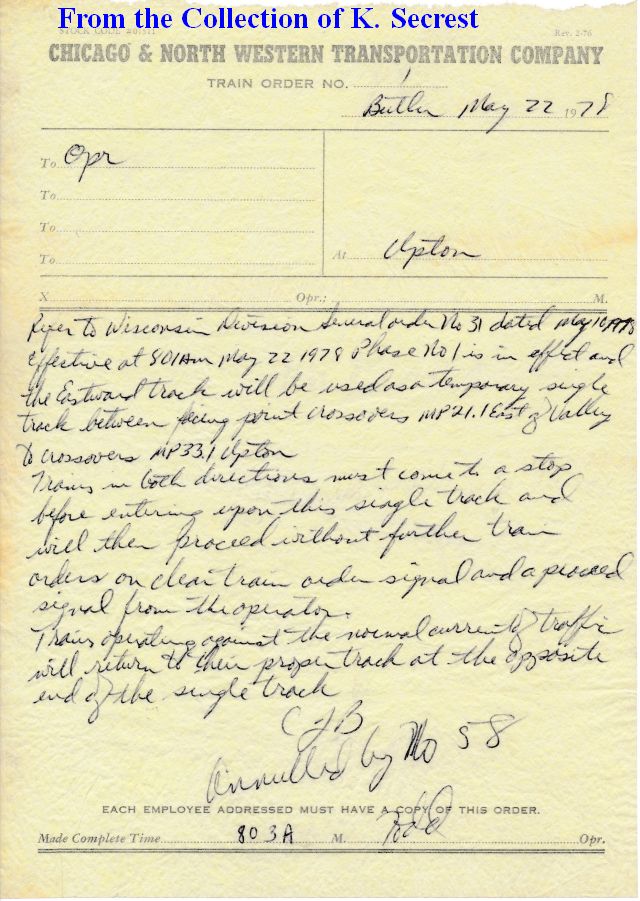 From the Collection of K. Secrest
STOCK CODE #01511
Rev. 2-76
CHICAGO & NORTH WESTERN TRANSPORTATION COMPANY
TRAIN ORDER NO. 1
Butler May 22 1978
To Opr
To
To
To
At Upton
X Opr.; M.
Refer to Wisconsin Division General order No 31 dated May 10, 1978
Effective at 801Am May 22 1978 Phase No 1 is in effect and
the Eastward track will be used as a temporary single
track between facing point crossovers MP21.1 East of Valley
to crossovers MP33.1 Upton
Trains in both directions must come to a stop
before entering upon this single track and
will then proceed without further train
orders on clear train order signal and a proceed
signal from the operator.
Trains operating against the normal current of traffic
will return to their proper track at the opposite
end of the single track
CJB
Annulled by No 58
EACH EMPLOYEE ADDRESSED MUST HAVE A COPY OF THIS ORDER.
Made Complete Time 803A M. Opr.